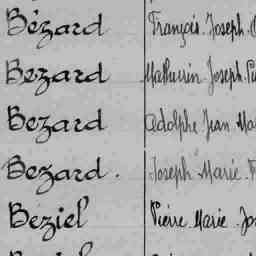 Bézard François Joseph
Bezard Mathurin Joseph
Bezard Adolphe Jean
Bezard. Joseph Marie
Beziel Pierre Marie